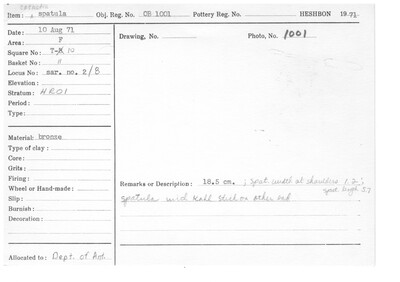 Item: spatula Obj. Reg. No. OB 1001 Pottery Reg. No. HESHBON 19 71
Date: 10 Aug 71 Drawing, No. Photo, No. 1001
Area: F
Square No: T-X 10
Basket No
Locus No: sar. no. 2/8
Elevation:
Stratum:
Period:
Type:
Material: bronze
Type of clay:
Core:
Grits:
Firing:
Wheel or Hand-made:
Slip:
Burnish:
Decoration:
Remarks or Description: 18.5 cm. ; spat. width at shoulders 1.2; spat. length 5.7
spatula with ball stick on other end
Allocated to: Dept. of Ant.